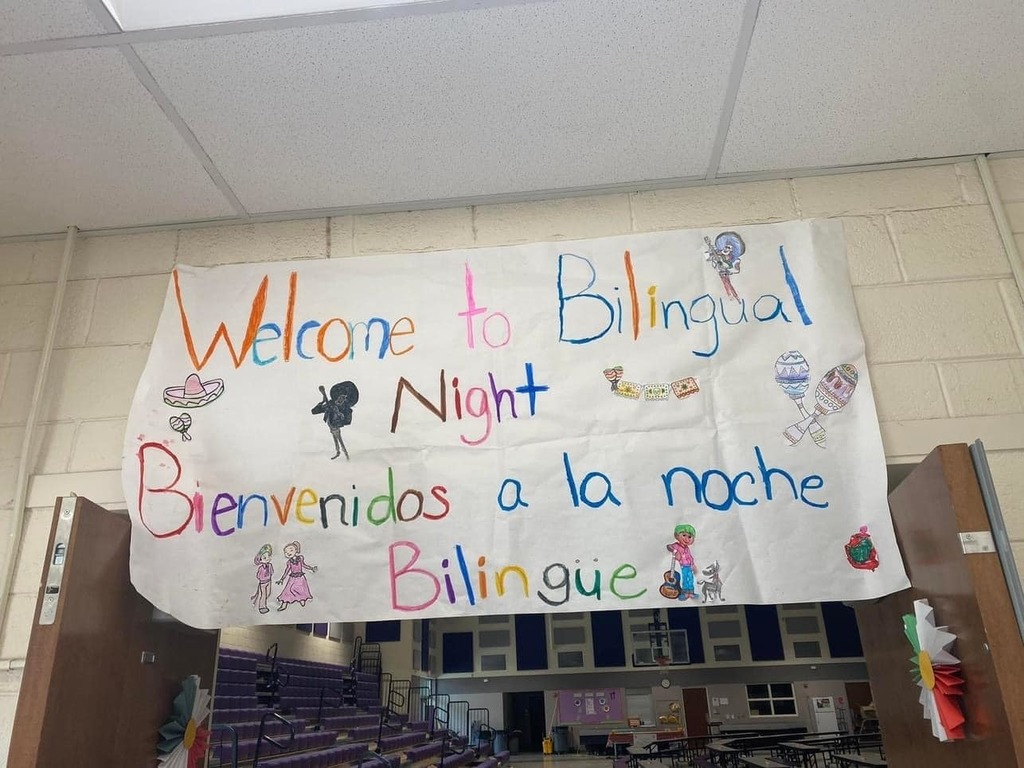 Welcome to Bilingual
Night
Bienvenidos a la noche
Bilingüe